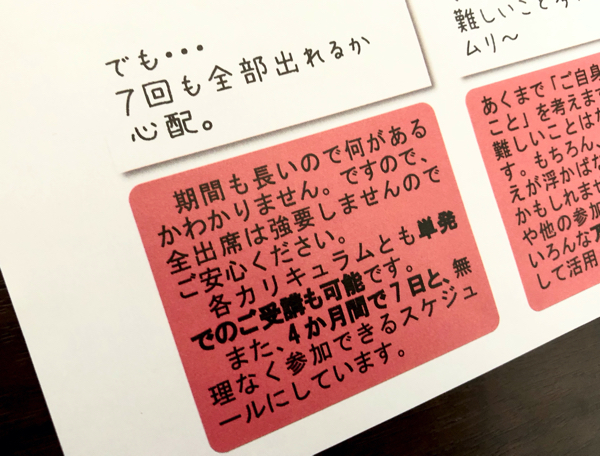 でも・・・
7回も全部出れるか
心配。
期間も長いので何がある
かわかりません。ですので、
全出席は強要しませんので
ご安心ください。
各カリキュラムとも単発
でのご受講も可能です。
また、4か月間で7日と、無
理なく参加できるスケジュ
ールにしています。
難しいこと
ムリ～
あくまで「ご自身
こと」を考えます
難しいことはな
す。もちろん、
えが浮かばな
かもしれませ
や他の参加
いろんなア
して活用